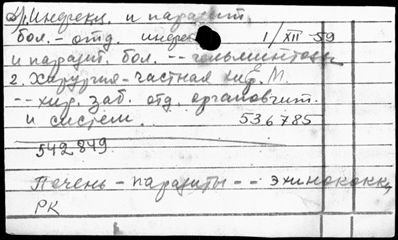 Инфекц. и паразит.
бол. - отд. инфек 1/XII-59
и паразит. бол. -- гельминтозы
2. Хирургия - частная Е. М.
-- хир. заб. отд. органов чит.
и систем. 536785
542849
Печень - паразиты -- эхинококк
РК